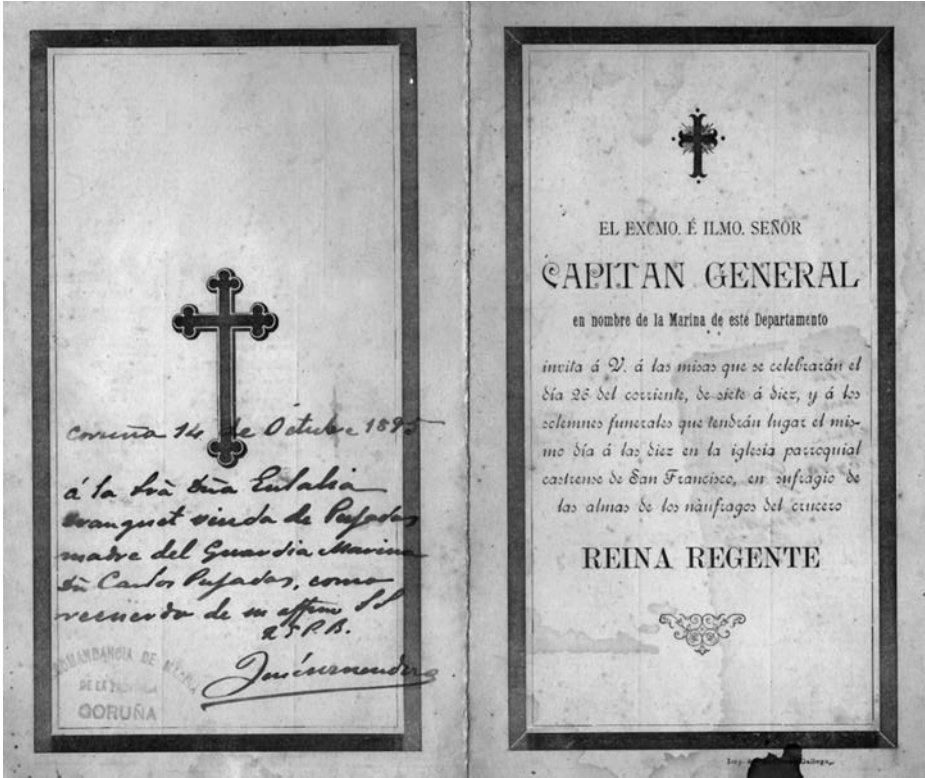 Coruña 14 de Octubre 1895
á la Sra Dña Eulalia
viuda de Pujadas
madre del Guardia Marina
Dn Carlos Pujadas, como
recuerdo de su affmo S S
Q S P. B.
COMANDANCIA DE MARINA
DE LA PROVINCIA
CORUÑA
EL EXCMO. É ILMO. SEÑOR
CAPITAN GENERAL
en nombre de la Marina de este Departamento
invita á V. á las misas que se celebrarán el
día 26 del corriente, de siete á diez, y á los
solemnes funerales que tendrán lugar el mis-
mo día á las diez en la iglesia parroquial
castrense de San Francisco, en sufragio de
las almas de los náufragos del crucero
REINA REGENTE
Imp. Gallego.